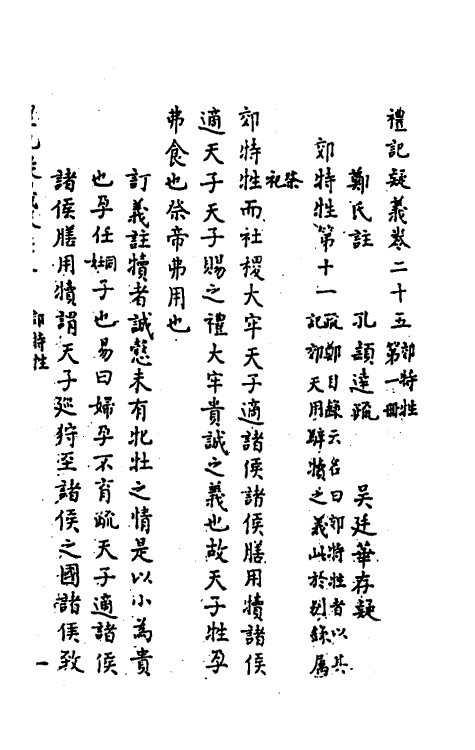 禮記疑義卷二十五 郊特牲第一冊
鄭氏註 孔穎達疏 吳廷華存疑
郊特牲第十一 疏鄭目錄云名曰郊特牲者以其
記郊天用騂犢之義此於別錄屬
祭祀
郊特牲而社稷大牢天子適諸侯諸侯膳用犢諸侯
適天子天子賜之禮大牢貴誠之義也故天子牲孕
弗食也祭帝弗用也
訂義註犢者誠慤未有牝牡之情是以小為貴
也孕任子也易曰婦孕不育疏天子適諸侯
諸侯膳用犢謂天子廵狩至諸侯之國諸侯致
郊特牲
一